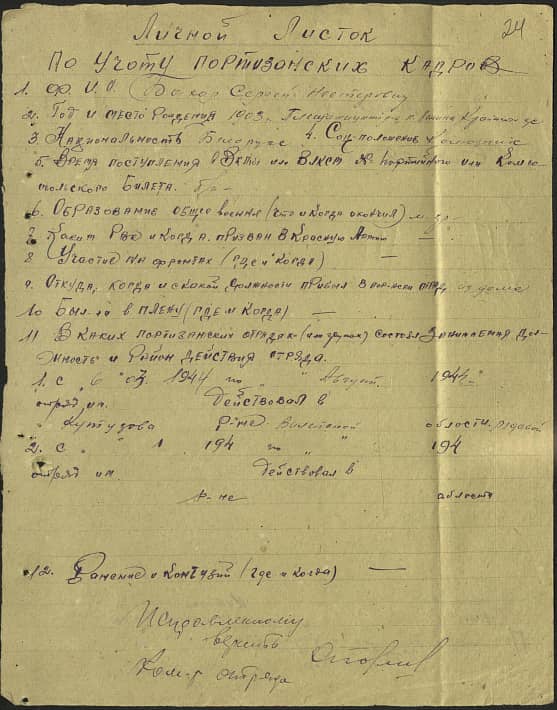 24
Личной Листок
По Учоту портизонских кадров
1. Ф. И. О. Сергей Нестерович
2. Год и место рождения 1903.
3. Национальность Белорус 4. Соц. положение
5. Время поступления в или ВЛКСМ № партийного или Комсо-
мольского Билета. б/п —
6. Образование общее военая (что и когда окончил)
7. Каким РВК и когда призван в Красную Армию —
8. Участие на фронтах (где и когда) —
9. Откуда, когда и с какой должности прибыл в из дома
10 Был ли в плену (где и когда) —
11 В каких портизанских отрядах состоял занимаемая дол-
жность и район действия отряда.
1. с " 6 " 07 1944 по " " Август 1944 "
отряд им. действовал в
Кутузова р-не области
2. с " " 194 по " " 194
отряд им. действовал в
р-не области
12. Ранение и контузий (где и когда) —
Исправленному
верить
Ком-р отряда